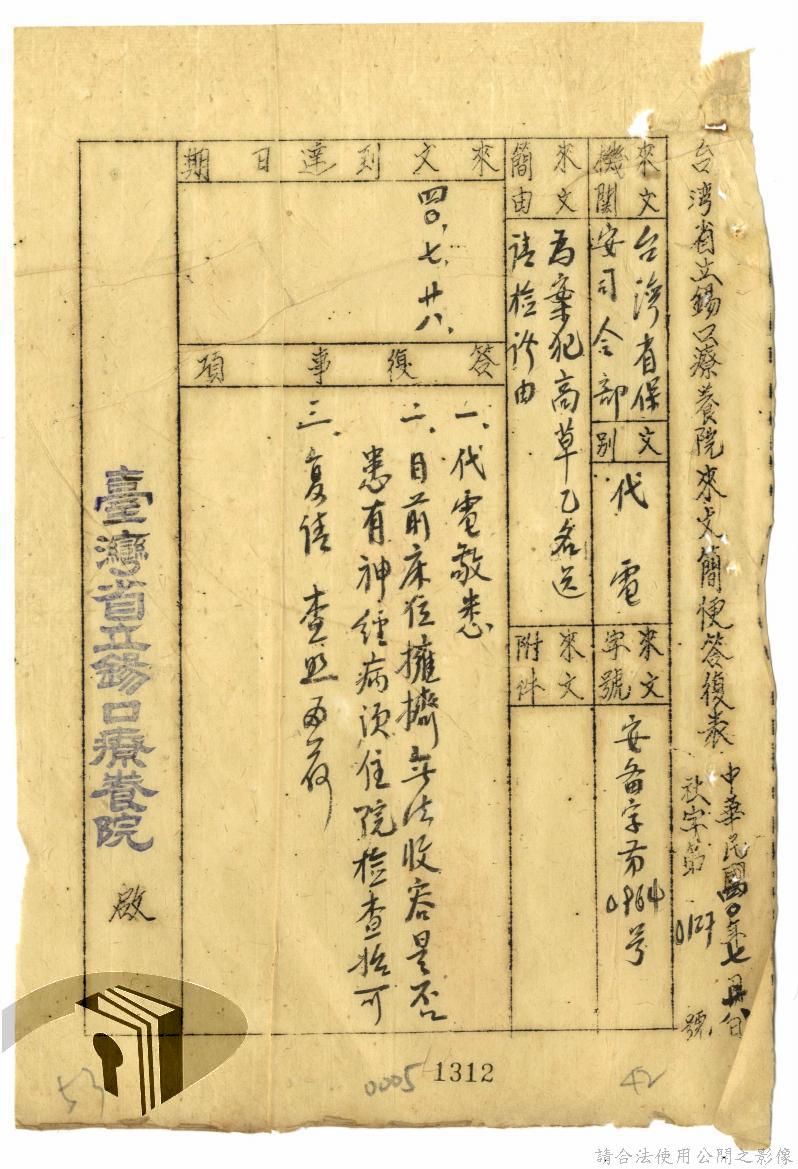 台湾省立錫口療養院來文簡便答復表
中華民國四〇年七月廿八日
秘字第0127號
來文機關
台灣省保安司令部
文別
代電
來文字號
安备字第0964号
來文簡由
為棄犯高草乙名送請检診由
來文附件
來文到達日期
四〇、七、廿八、
簽復事項
一、代電敬悉
二、目前床位擁擠无法收容是否
患有神經病須住院检查始可
三、复请 查照為荷
臺灣省立錫口療養院 啟
53
0005
1312
42
請合法使用公開之影像